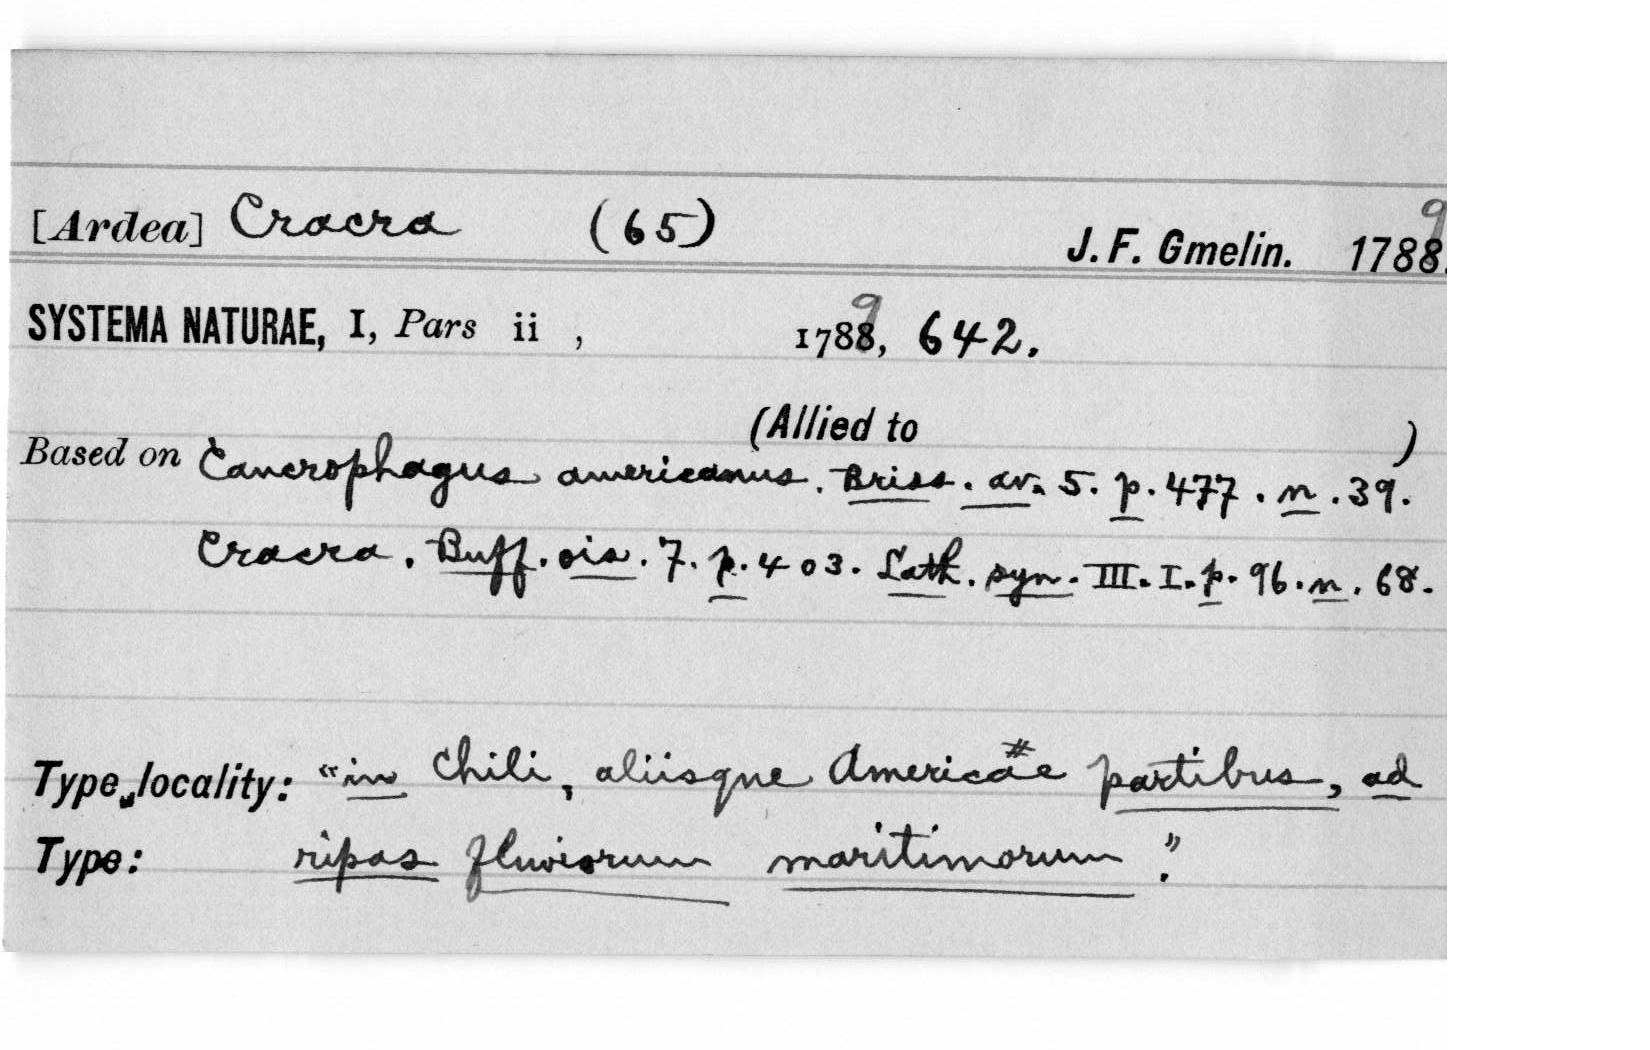 [Ardea] Cracra (65) J. F. Gmelin. 17889.
SYSTEMA NATURAE, I, Pars ii , 17889, 642.
(Allied to )
Based on Cancrophagus americanus. Briss. av. 5. p. 477. n. 39.
Cracra. Buff. ois. 7. p. 403. Lath. syn. III. I. p. 96. n. 68.
Type locality: "in Chili, aliisque Americae partibus, ad
Type: ripas fluviorum maritimorum."